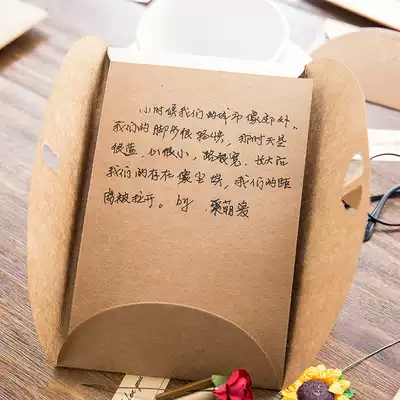 小时候我们的城市像郊外，
我们的脚步很轻快，那时天是
很蓝，心很小，路很宽。长大后
我们的存在像尘埃，我们的距
离被拉开。by
love you